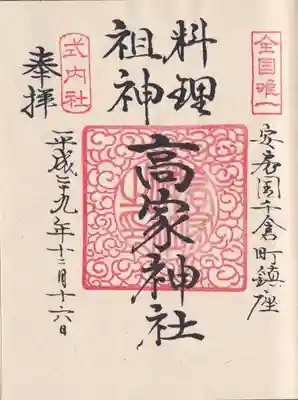 全国唯一
安房国千倉町鎮座
料理
祖神
高家神社
式内社
奉拝
平成二十九年十二月十六日